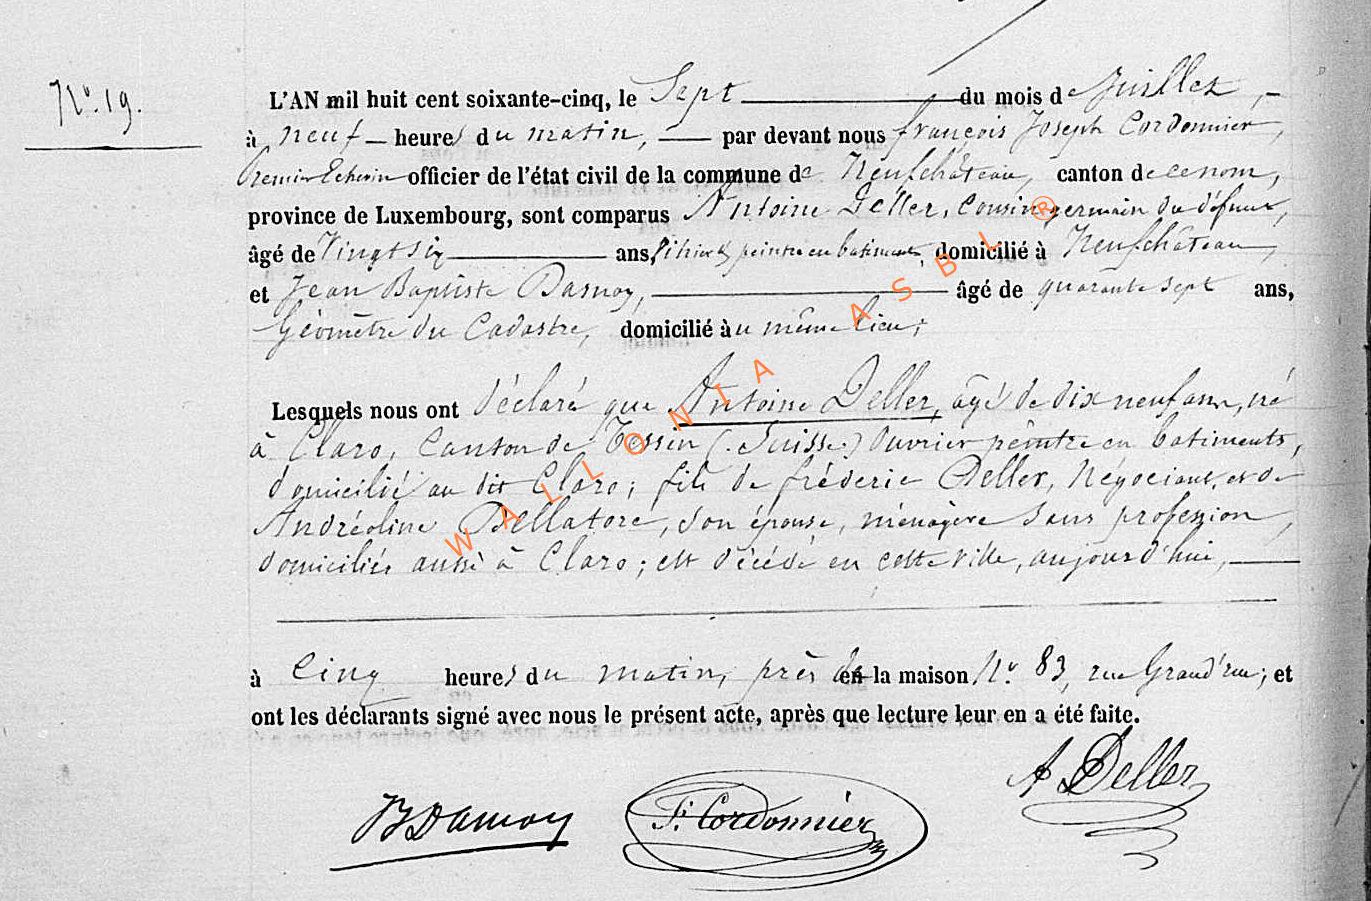 N° 19.
L'AN mil huit cent soixante-cinq, le Sept du mois de Juillet,
à neuf heures du matin, par devant nous françois Joseph Cordonnier,
Premier Echevin officier de l'état civil de la commune de Neufchâteau, canton de ce nom,
province de Luxembourg, sont comparus Antoine Deller, Cousin germain du défunt,
âgé de Vingt six ans, peintre en batiments, domicilié à Neufchâteau,
et Jean Baptiste Dasnoy, âgé de quarante sept ans,
Géomètre du Cadastre, domicilié au même lieu;
Lesquels nous ont déclaré que Antoine Deller, âgé de dix neuf ans, né
à Claro, Canton de Tessin (Suisse) Ouvrier peintre en batiments,
domicilié au dit Claro; fils de fréderic Deller, Négociant, et de
Andréoline Bellatore, son épouse, ménagère sans profession,
domiciliés aussi à Claro; est décédé en cette ville, aujourd'hui,
à Cinq heures du matin, près de la maison N° 83, rue Grand'rue; et
ont les déclarants signé avec nous le présent acte, après que lecture leur en a été faite.
A Deller
B Dasnoy F: Cordonnier
WALLONIA ASBL ®